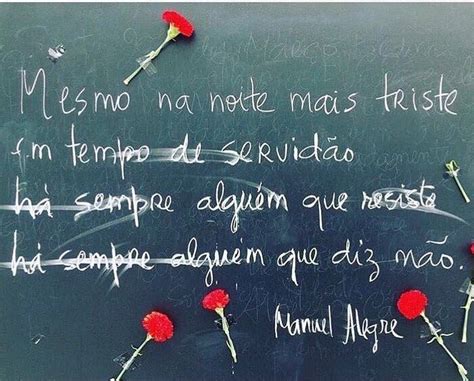 Mesmo na noite mais triste
Em tempo de servidão
há sempre alguém que resiste
há sempre alguém que diz não.
Manuel Alegre